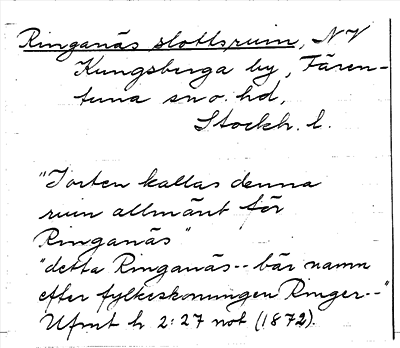 Ringanäs slottsruin, NV
Kungsberga by, Fären-
tuna sn o. hd,
Stockh. l.
"I orten kallas denna
ruin allmänt för
Ringanäs"
"detta Ringanäs -- bär namn
efter fylkeskonungen Ringer--"
Ufmt h 2:27 not (1872).